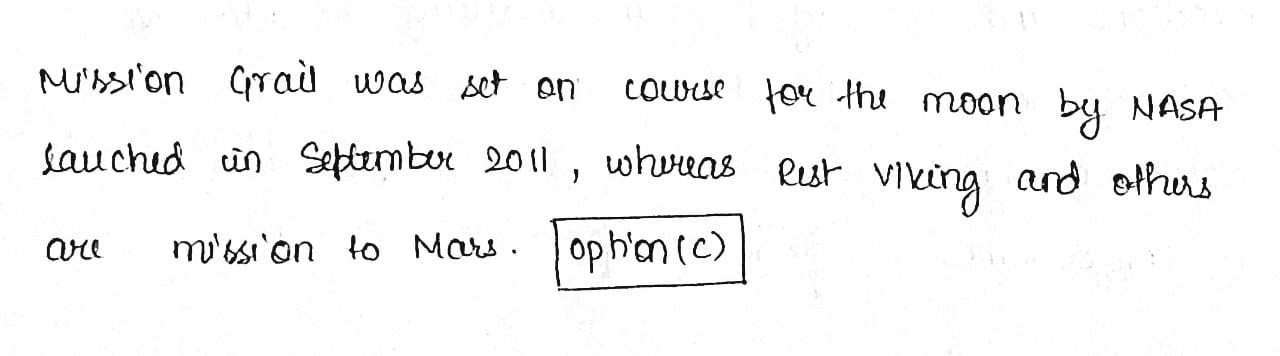 Mission Grail was set on course for the moon by NASA
lauched in September 2011, whereas Rest Viking and others
are mission to Mars. option (c)